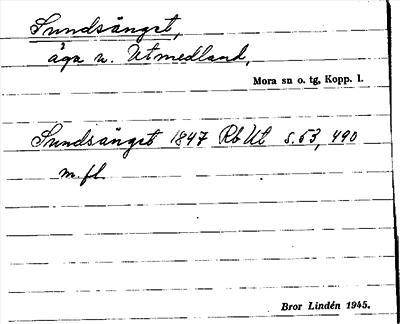 Sundsänget,
äga u. Utmedland,
Mora sn o. tg, Kopp. l.
Sundsänget 1847 Rb Ut s. 53, 490
m. fl.
Bror Lindén 1945.